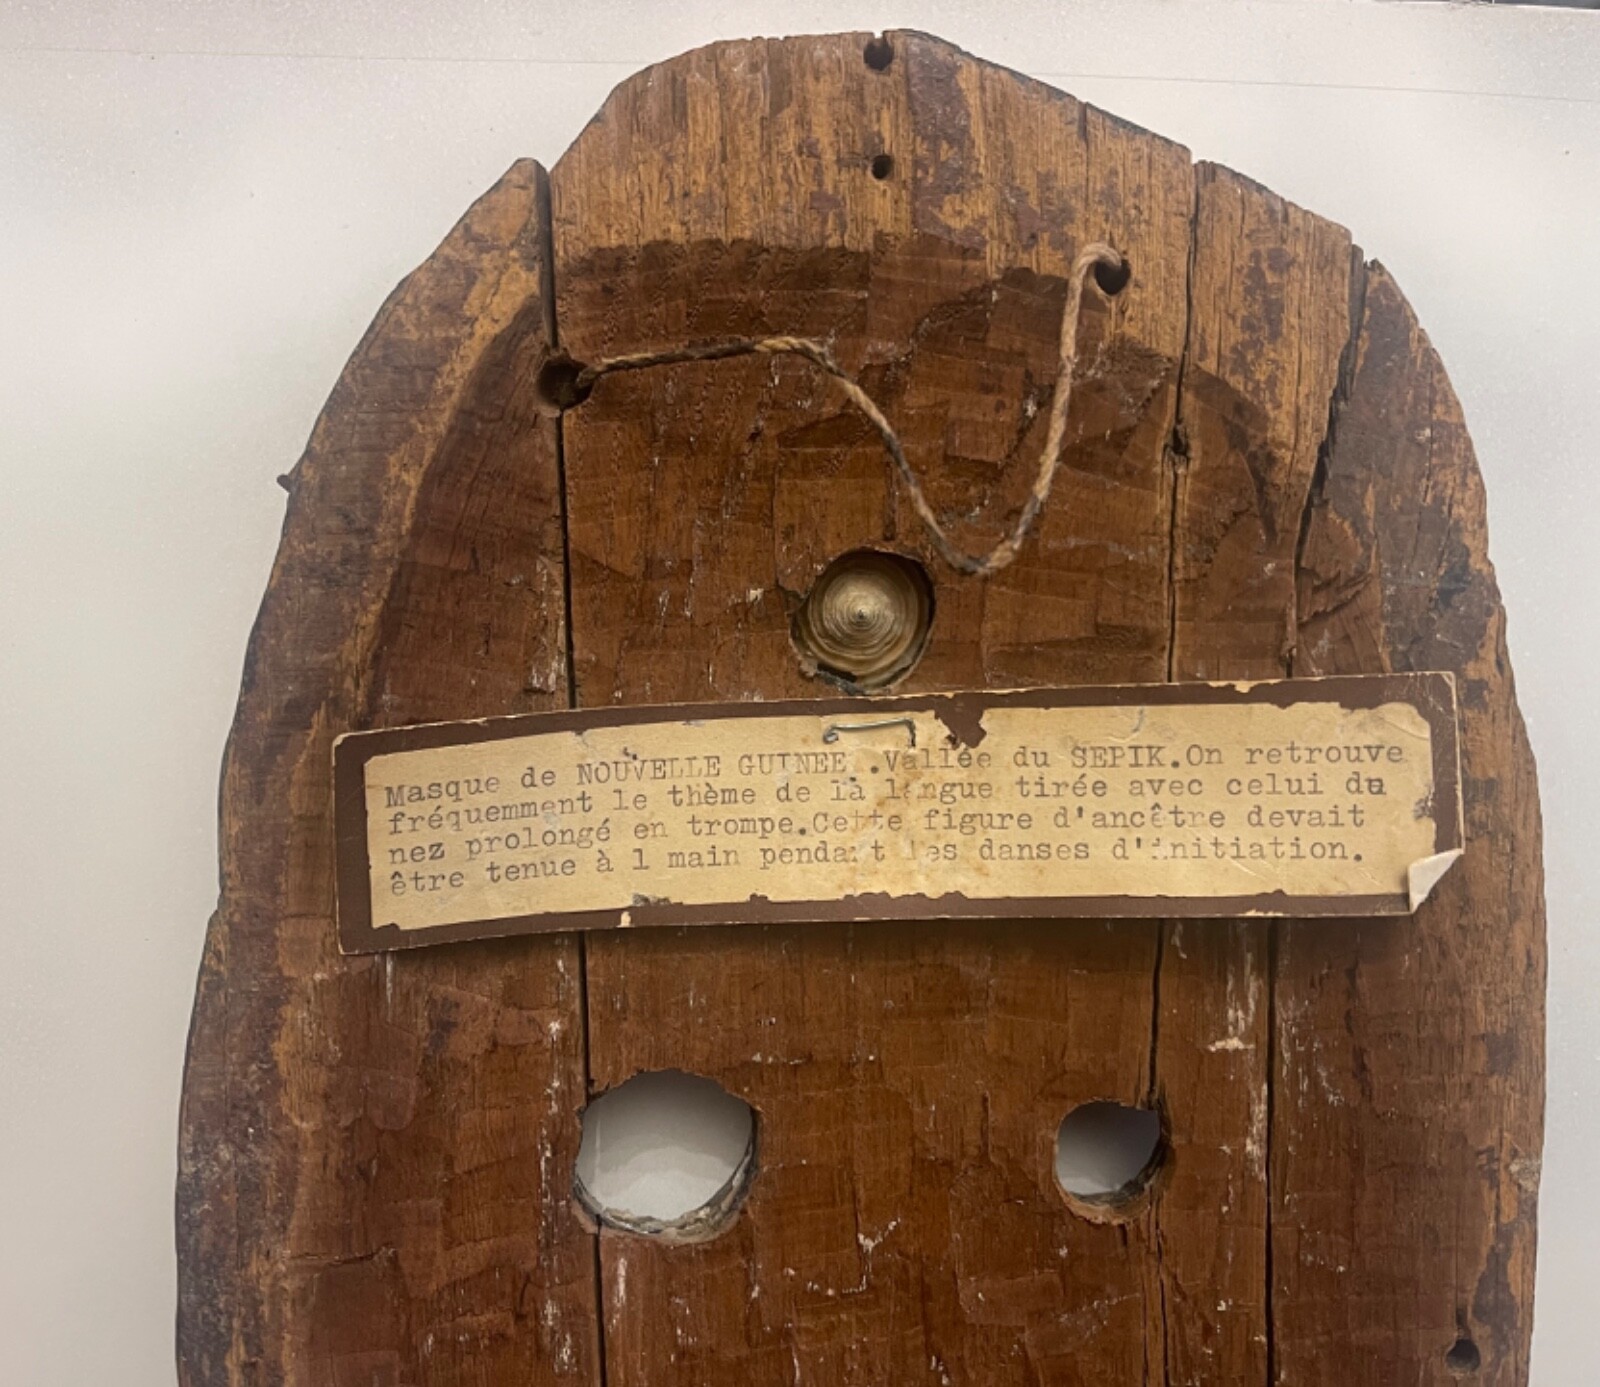 Masque de NOUVELLE GUINEE .Vallée du SEPIK.On retrouve
fréquemment le thème de la langue tirée avec celui du
nez prolongé en trompe.Cette figure d'ancêtre devait
être tenue à 1 main pendant les danses d'initiation.